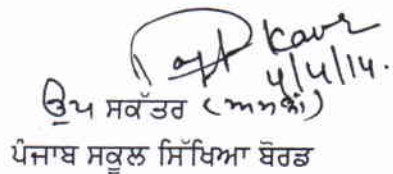 Kaur
4/4/14.
ਉਪ ਸਕੱਤਰ (ਅਮਲਾ)
ਪੰਜਾਬ ਸਕੂਲ ਸਿੱਖਿਆ ਬੋਰਡ